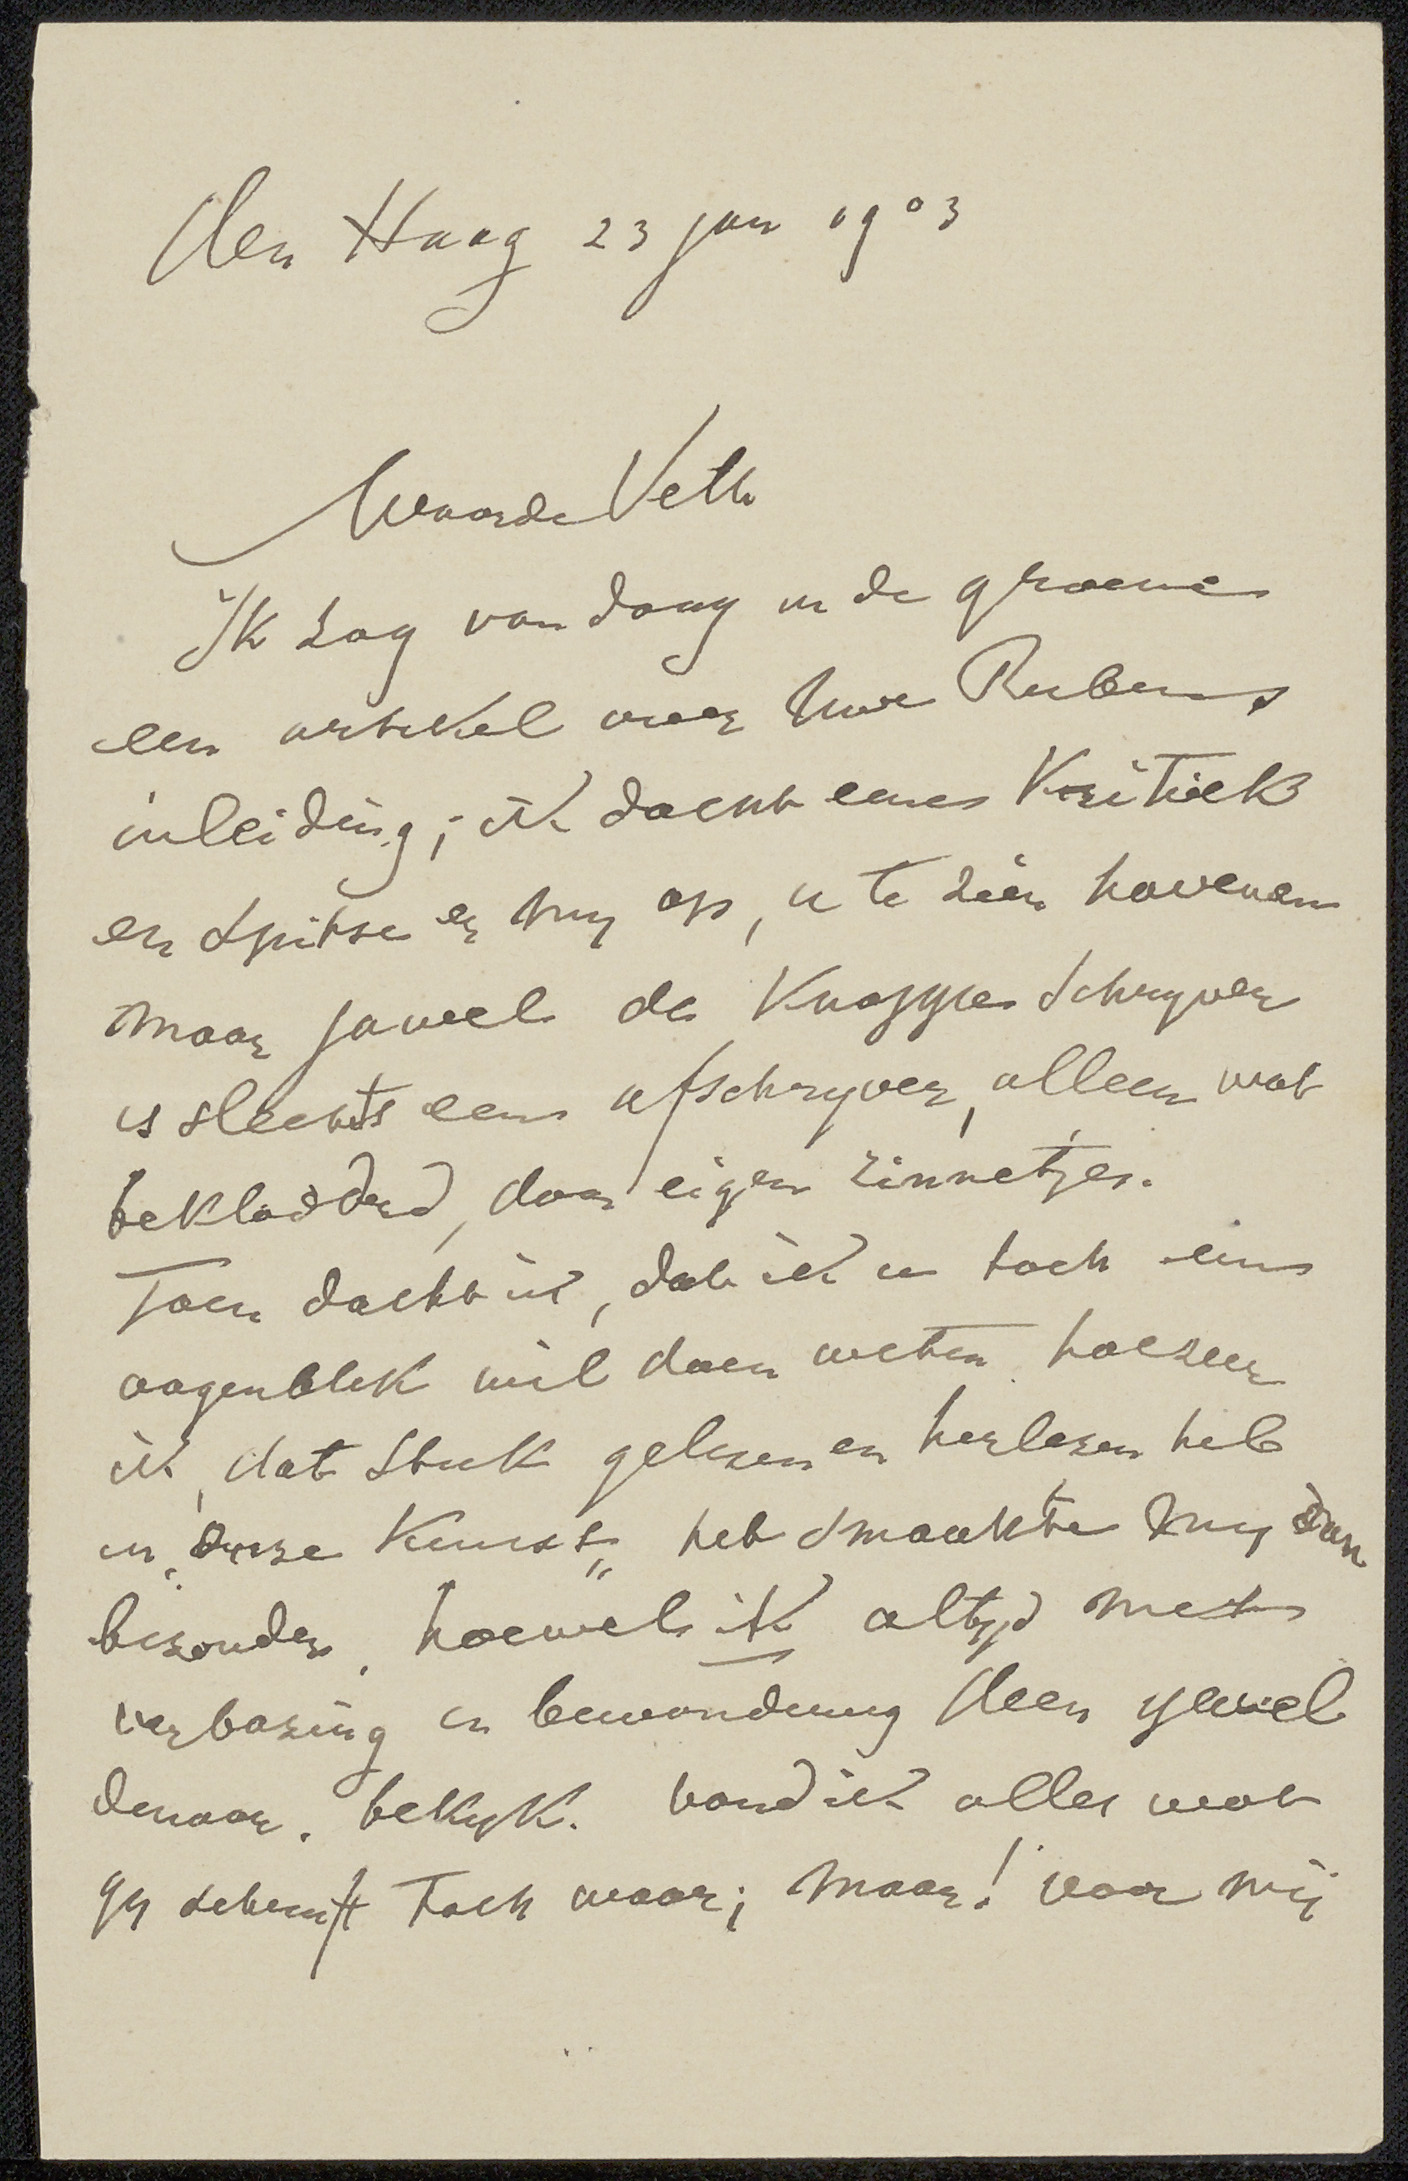 den Haag 23 jan 1903
Waarde Veth
Ik zag van daag in de groene
een artikel over Uwe Rubens
inleiding; ik dacht eene Kritiek
en spitse er my op, u te zien havenen
maar jawel de Knappe Schryver
is slechts een afschryver, alleen wat
beklodderd, door eigen zinnetjes.
Toen dacht ik, dat ik u toch eens
oogenblik wil doen weten hoezeer
ik, dat stuk gelezen en herlezen heb
in "Onze Kunst" het smaakte my
bezonder, hoewel ik altyd met
verbazing en bewondering deen geweldenaar
bekyk. vond ik alles wat
gy schreeft toch waar; maar! voor mij